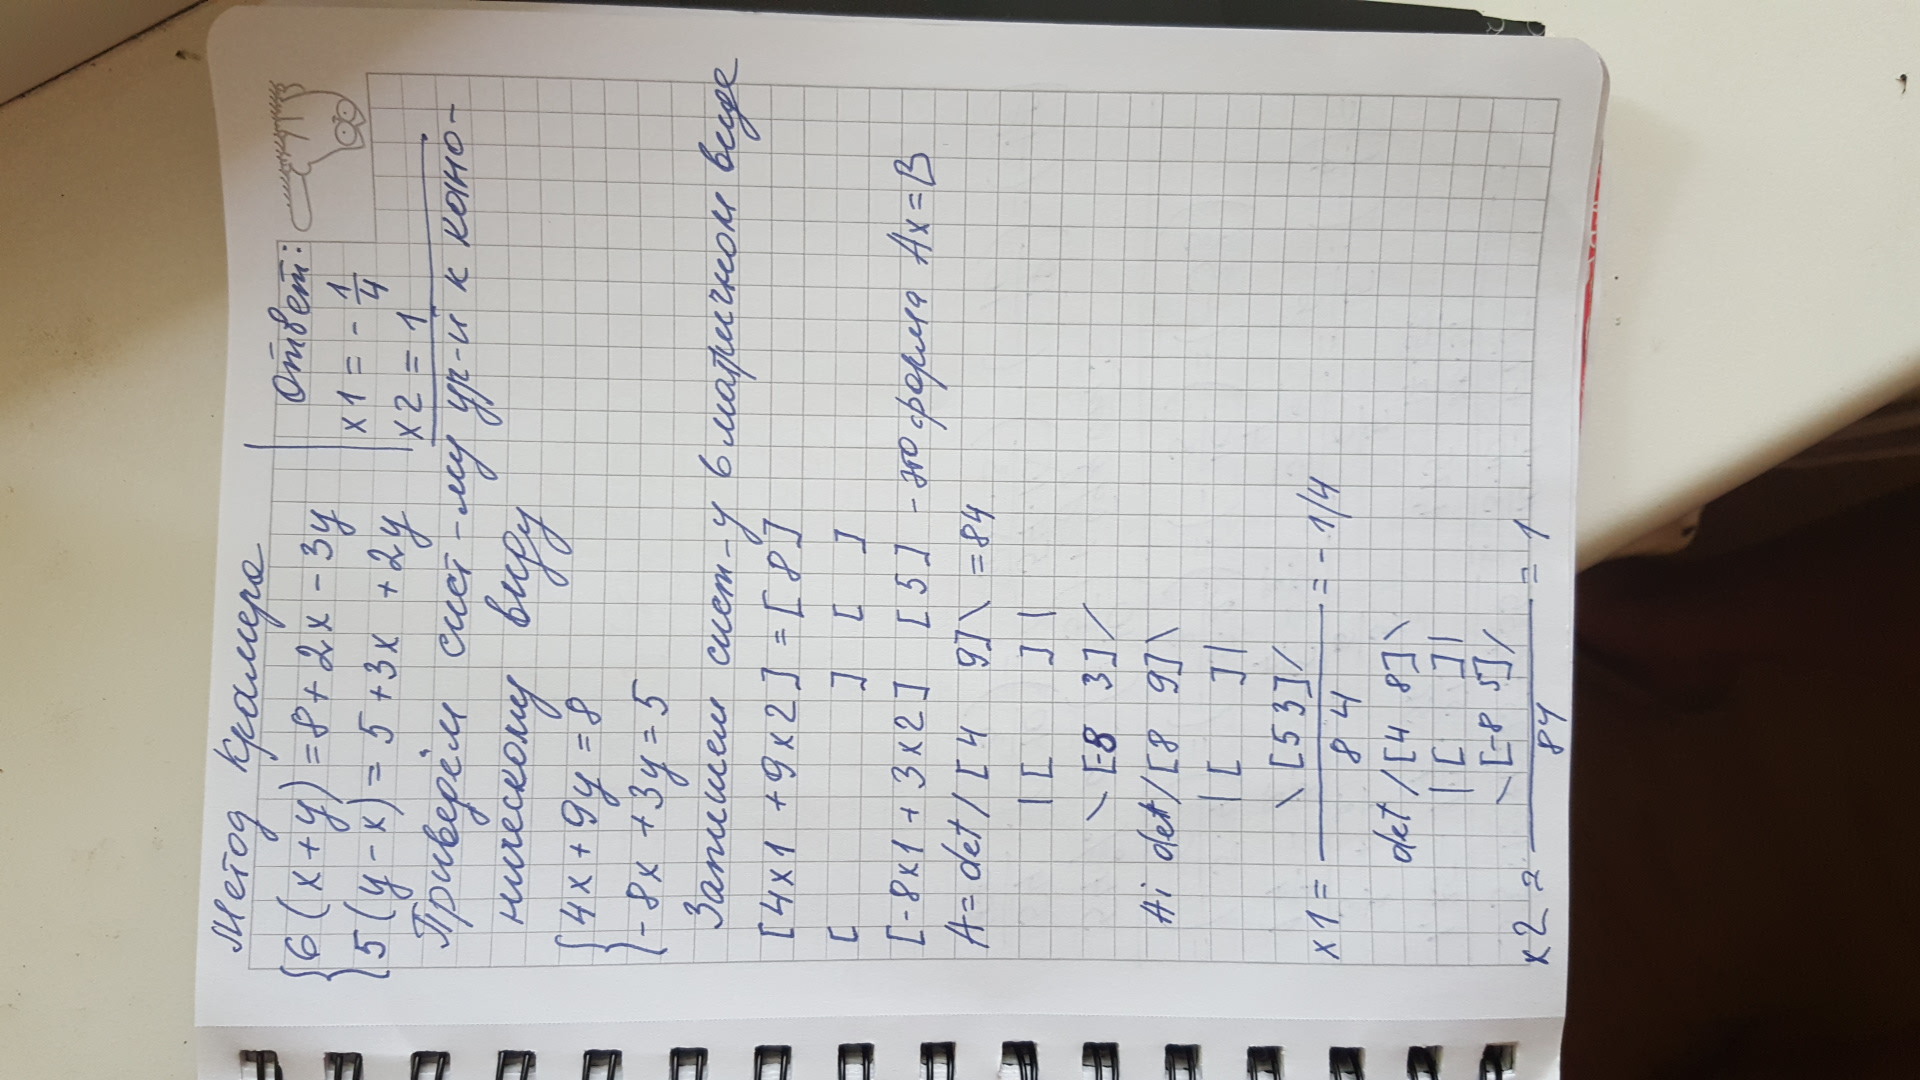 Метод Крамера
{6(x+y)=8+2x-3y
{5(y-x)=5+3x+2y
Ответ:
x1=-1/4
x2=1
Приверём сист-му ур-и к кано-
ническому виду
{4x+9y=8
{-8x+3y=5
Запишем сист-у в матричном виде
[4x1+9x2]=[8]
[ ] [ ]
[-8x1+3x2] [5] - это форма Ax=B
A=det/[4 9]\=84
|[ ]|
\[-8 3]/
Ai det/[8 9]\
|[ ]|
\[5 3]/
x1= ――― =-1/4
84
det/[4 8]\
|[ ]|
\[-8 5]/
x2= ――― =1
84